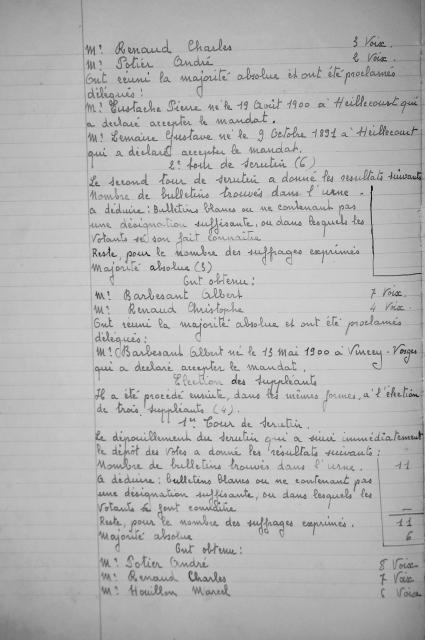 Mr. Renaud Charles 3 Voix.
Mr. Potier André 2 Voix.
Ont réuni la majorité absolue et ont été proclamés
délégués :
Mr. Eustache Pierre né le 19 Août 1900 à Heillecourt qui
a déclaré accepter le mandat.
Mr. Lemaire Gustave né le 9 Octobre 1891 à Heillecourt
qui a déclaré accepter le mandat.
2e tour de scrutin (6)
Le second tour de scrutin a donné les résultats suivants
Nombre de bulletins trouvés dans l'urne.
A déduire : Bulletins blancs ou ne contenant pas
une désignation suffisante, ou dans lesquels les
Votants se son fait connaître
Reste, pour le nombre des suffrages exprimés
Majorité absolue (3)
Ont obtenu :
Mr. Barbesant Albert 7 Voix.
Mr. Renaud Christophe 4 Voix.
Ont réuni la majorité absolue et ont été proclamés
délégués :
Mr. Barbesant Albert né le 13 Mai 1900 à Vincey-Vosges
qui a déclaré accepter le mandat.
Election des suppléants
Il a été procédé ensuite, dans les mêmes formes, à l'élection
de trois suppléants (4).
1er Tour de scrutin.
Le dépouillement du scrutin qui a suivi immédiatement
le dépôt des votes a donné les résultats suivants :
Nombre de bulletins trouvés dans l'urne. 11
A déduire : bulletins blancs ou ne contenant pas
une désignation suffisante, ou dans lesquels les
Votants se sont connaître —
Reste, pour le nombre des suffrages exprimés. 11
Majorité absolue 6
Ont obtenu :
Mr. Potier André 8 Voix
Mr. Renaud Charles 7 Voix
Mr. Houillon Marcel 6 Voix